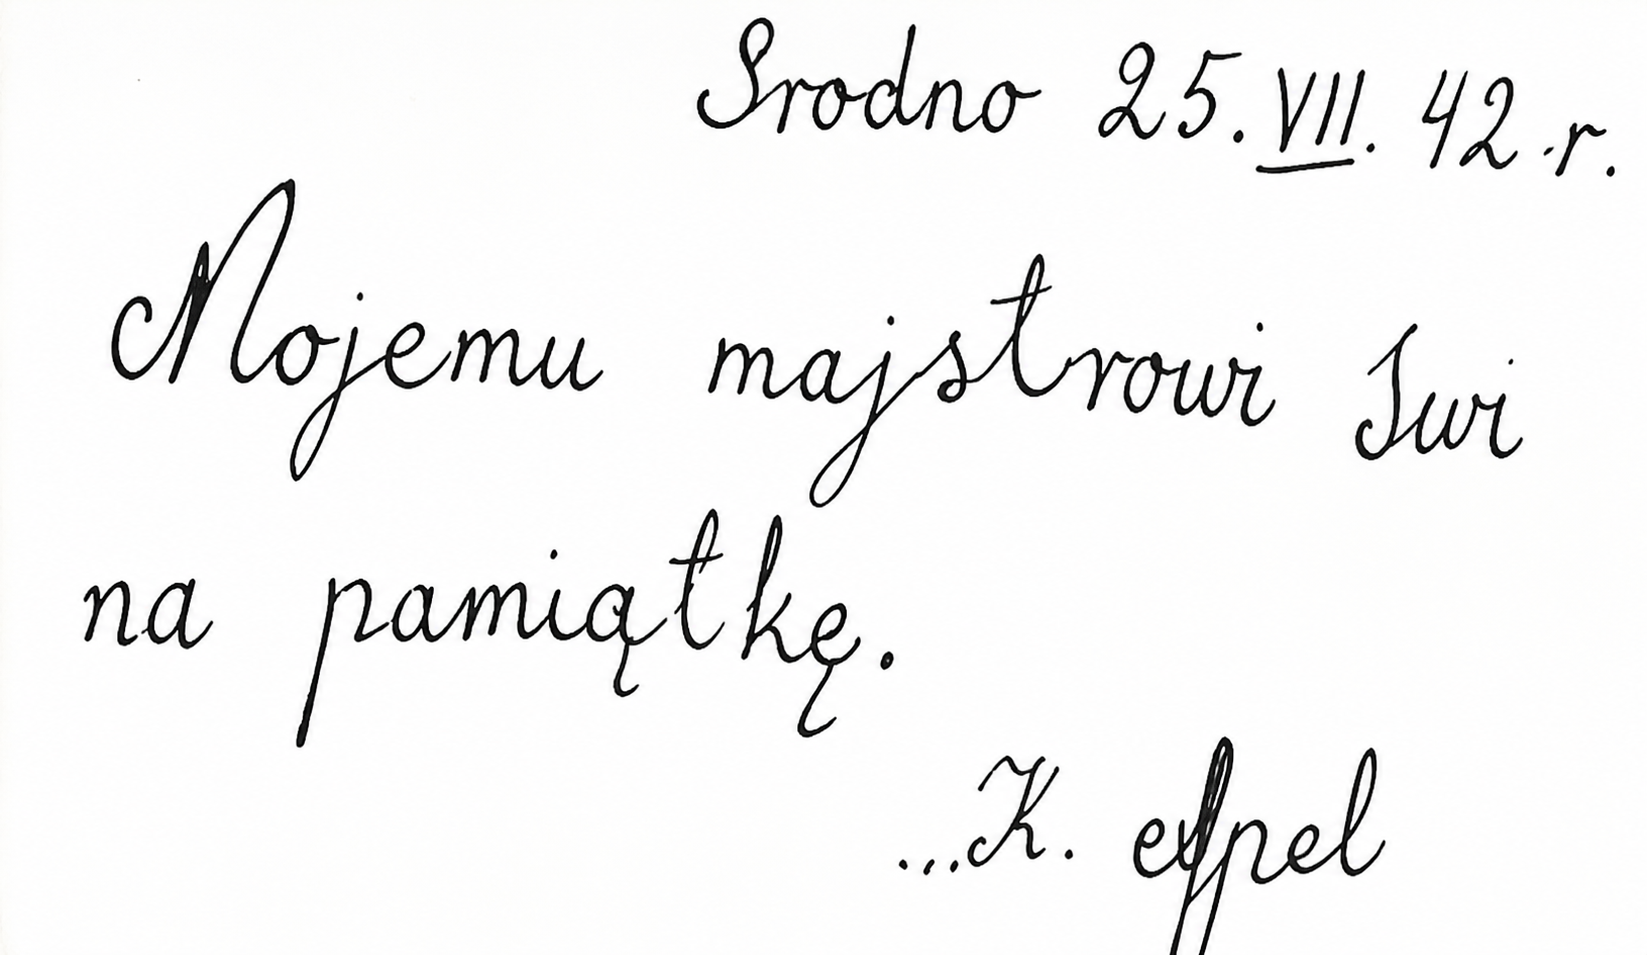 Srodno 25. VII. 42 r.
Mojemu majstrowi Swi
na pamiątkę.
...K.